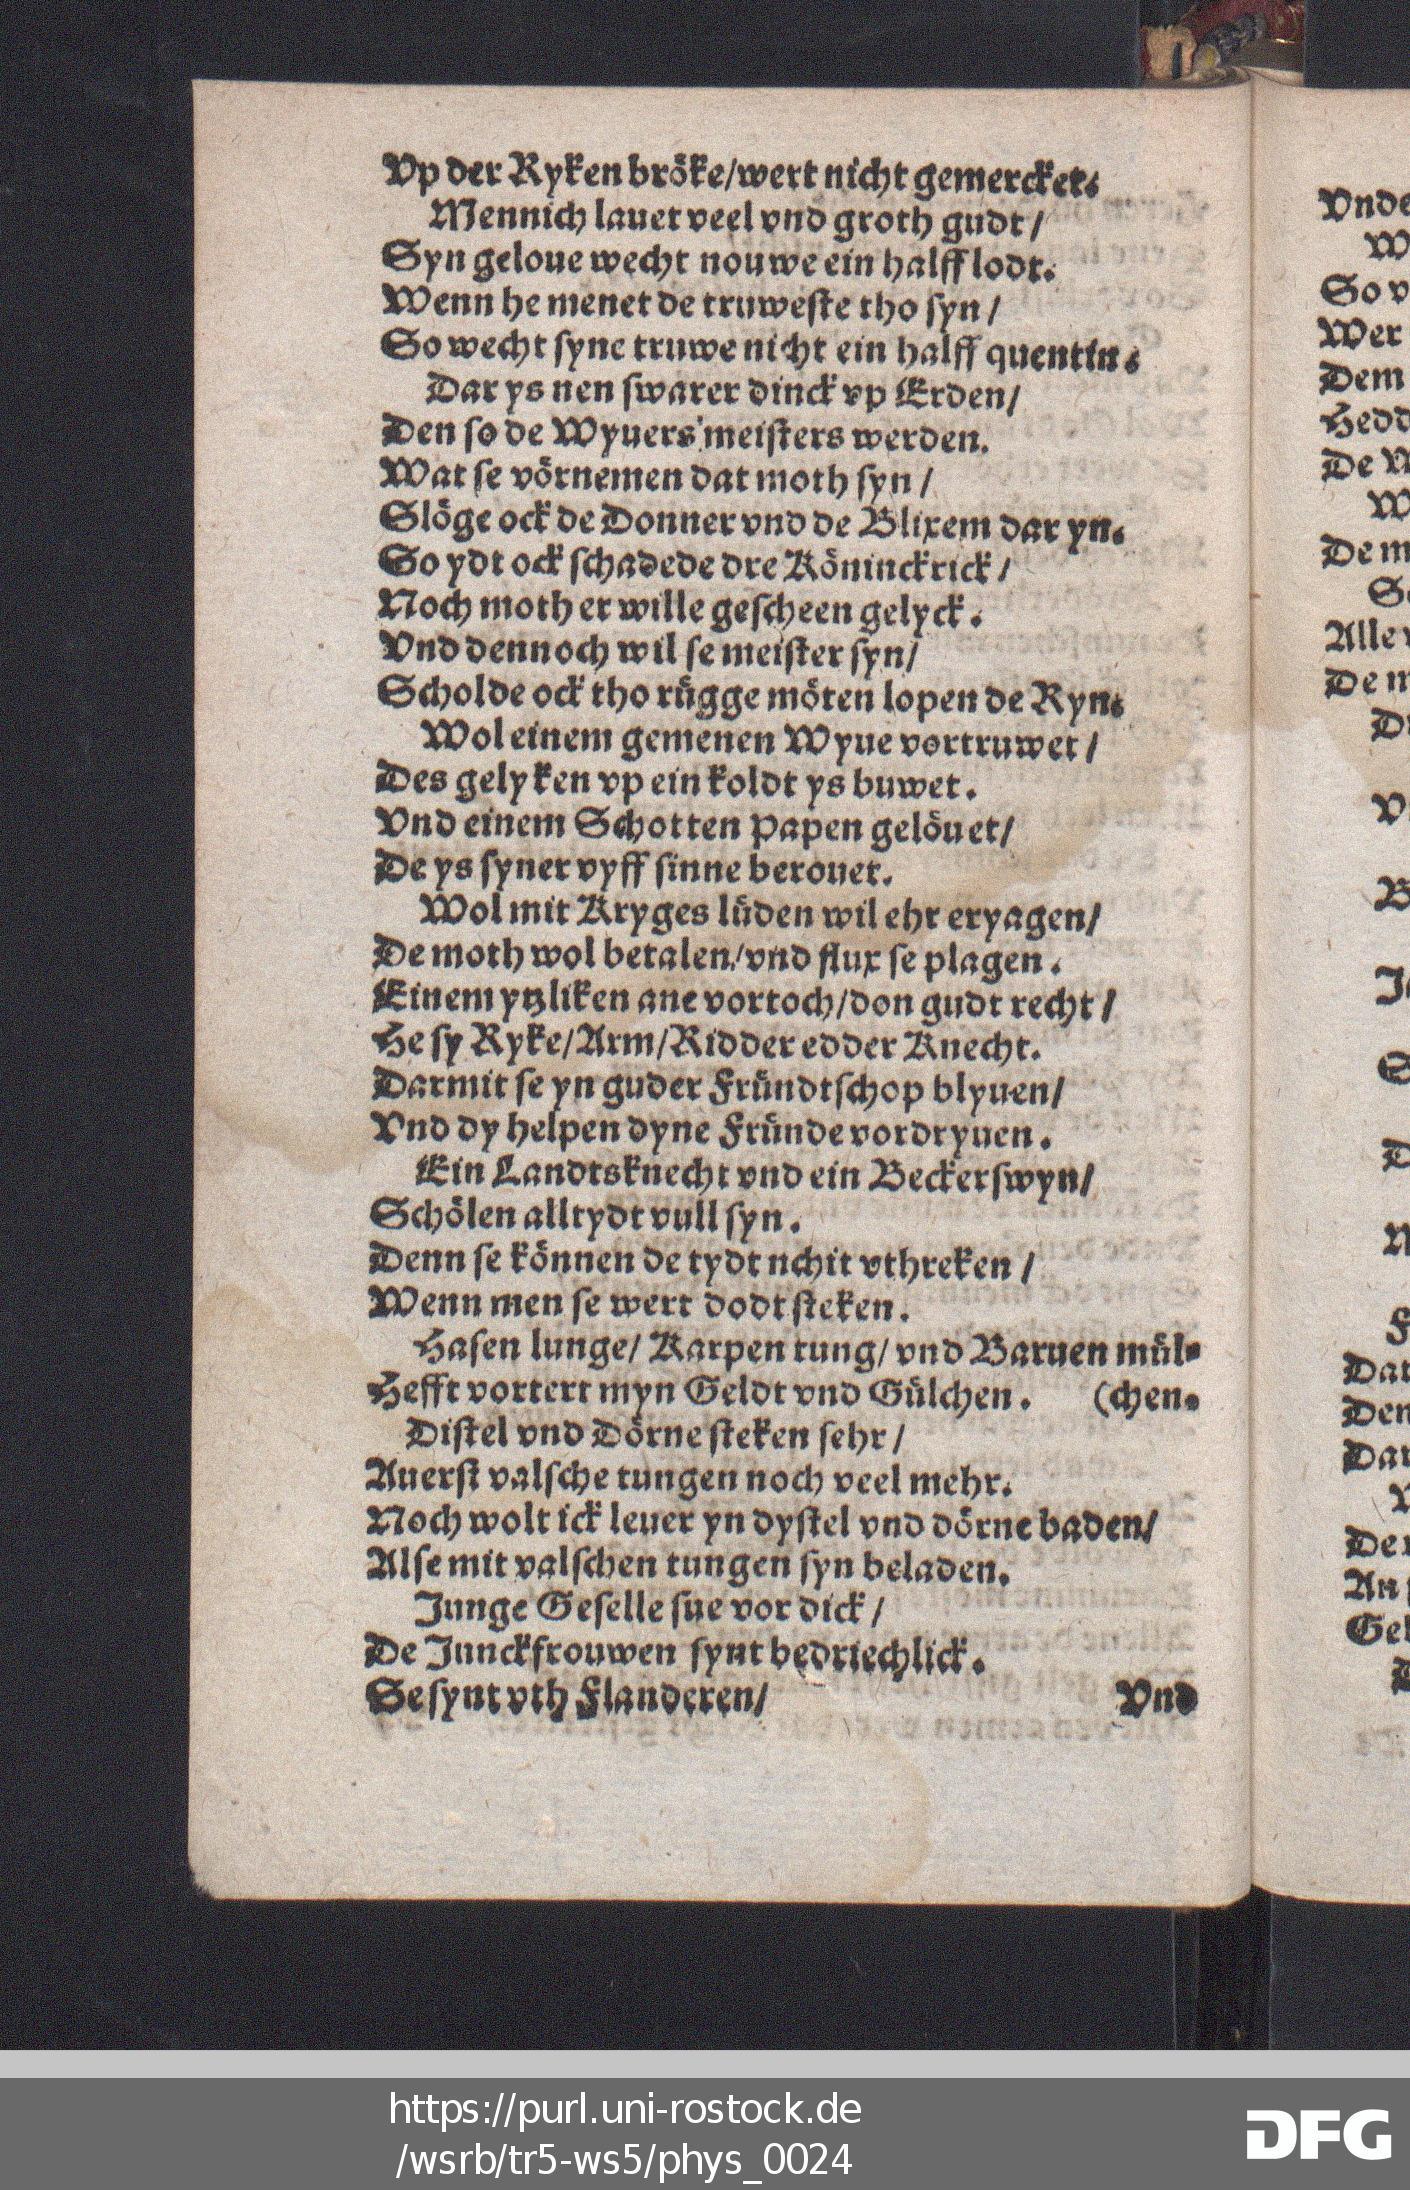 Vp der Ryken bröke/wert nicht gemercket.
Mennich lauet veel vnd groth gudt/
Syn geloue wecht nouwe ein halff lodt.
Wenn he menet de truweste tho syn/
So wecht syne truwe nicht ein halff quentin.
Dar ys nen swarer dinck vp Erden/
Den so de Wyuers meisters werden.
Wat se vörnemen dat moth syn/
Slöge ock de Donner vnd de Blixem dar yn.
So ydt ock schadede dre Köninckrick/
Noch moth er wille gescheen gelyck.
Vnd dennoch wil se meister syn/
Scholde ock tho rügge möten lopen de Ryn.
Wol einem gemenen Wyue vortruwet/
Des gelyken vp ein koldt ys buwet.
Vnd einem Schotten papen gelöuet/
De ys syner vyff sinne berouet.
Wol mit Kryges lüden wil ehr eryagen/
De moth wol betalen/vnd flux se plagen.
Einem ytzliken ane vortoch/don gudt recht/
He sy Ryke/Arm/Ridder edder Knecht.
Darmit se yn guder Fründtschop blyuen/
Vnd dy helpen dyne Fründe vordryuen.
Ein Landtsknecht vnd ein Beckerswyn/
Schölen alltydt vull syn.
Denn se können de tydt nchit vthreken/
Wenn men se wert dodt steken.
Hasen lunge/ Karpen tung/ vnd Baruen mül-
Hefft vortert myn Geldt vnd Gülchen. (chen.
Distel vnd Dörne steken sehr/
Auerst valsche tungen noch veel mehr.
Noch wolt ick leuer yn dystel vnd dörne baden/
Alse mit valschen tungen syn beladen.
Junge Geselle sue vor dick/
De Junckfrouwen synt bedriechlick.
Se synt vth Flanderen/
Vnd
Vnde
W
So v
Wer
Dem
Hedd
De
W
De m
Alle
De m
D
V
B
S
D
F
Dar
Den
Dar
De
An
Gel
https://purl.uni-rostock.de
/wsrb/tr5-ws5/phys_0024
DFG